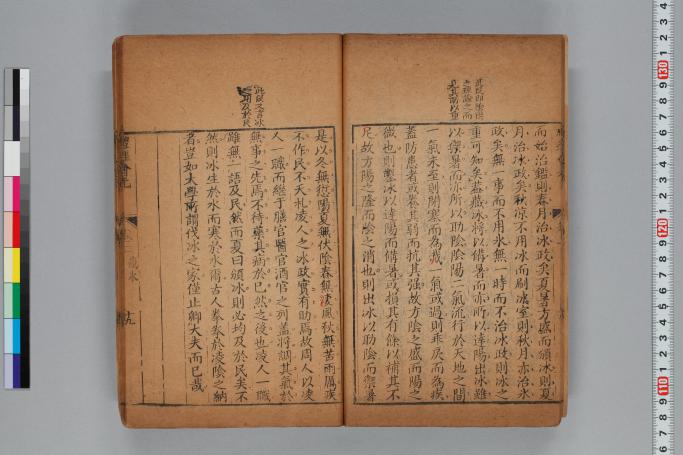 而始治鑑則春月治冰政矣夏暑方盛而頒冰則夏
月治冰政矣秋凉不用冰而刷冰室則秋月亦治冰
政矣無一事而不用冰無一時而不治冰政則冰之
重可知矣蓋藏冰將以備暑而亦所以達陽出冰雖
以禦暑而亦所以助陰陰陽二氣流行於天地之間
一氣未至則閉塞而為
一氣或過則乖戾而為疾
蓋防患者或養其弱而抗其强故方陰之盛而陽之
微也則藏冰以達陽而備暑或損其有餘以補其不
足故方陽之隆而陰之消也則出冰以助陰而禦暑
是以冬無愆陽夏無伏陰春無凄風秋無苦雨厲疾
不作民不夭札凌人之冰政實有助焉故周人以凌
人一職而繼于膳官醫官酒官之列蓋將調其氣於
無事之先焉不待藥其病於已然之後也凌人一職
雖無一語及民然而夏曰頒冰則必均及於民矣不
然則冰生於水而寒於水爾古人拳拳於凌陰之納
者豈如大學所謂伐冰之家僅止卿大夫而已哉
此段又言冰
用及於民
藏冰
十九